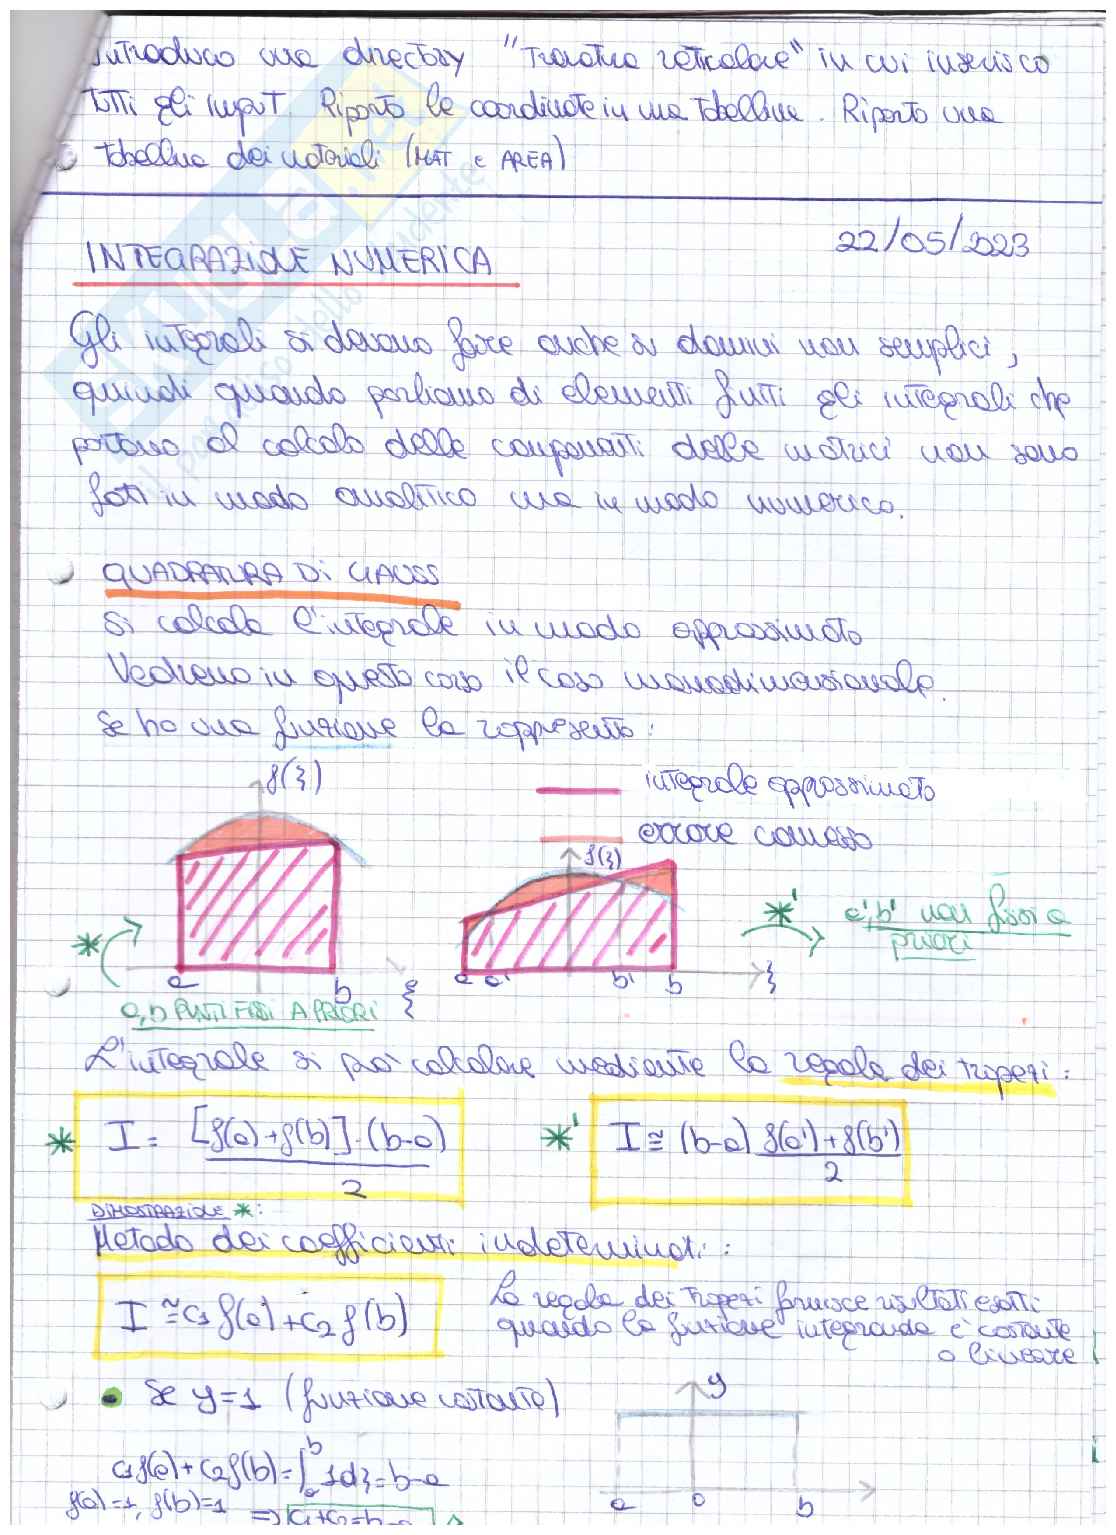 Introduco una directory "Travatura reticolare" in cui inserisco
tutti gli input. Riporto le coordinate in una tabellina. Riporto una
tabellina dei materiali (MAT e AREA)
22/05/2023
INTEGRAZIONE NUMERICA
Gli integrali si devono fare anche su domini non semplici,
quindi quando parliamo di elementi finiti gli integrali che
portano al calcolo delle componenti delle matrici non sono
fatti in modo analitico ma in modo numerico.
QUADRATURA DI GAUSS
Si calcola l'integrale in modo approssimato
Vediamo in questo caso il caso monodimensionale.
Se ho una funzione la rappresento:
f(ξ)
integrale approssimato
errore commesso
f(ξ)
*
*'
a', b' non fissi a
priori
a b ξ
a a' b' b ξ
a, b PUNTI FISSI A PRIORI
L'integrale si può calcolare mediante la regola dei trapezi:
* I = [f(a)+f(b)]·(b-a) / 2
*' I ≅ (b-a) f(a')+f(b') / 2
DIMOSTRAZIONE *:
Metodo dei coefficienti indeterminati:
I ≅ c1 f(a) + c2 f(b)
La regola dei trapezi fornisce risultati esatti
quando la funzione integranda è costante
o lineare
Se y=1 (funzione costante)
y
c1f(a)+c2f(b)=∫_a^b 1dξ=b-a
f(a)=1, f(b)=1 ⇒ c1+c2=b-a
a 0 b